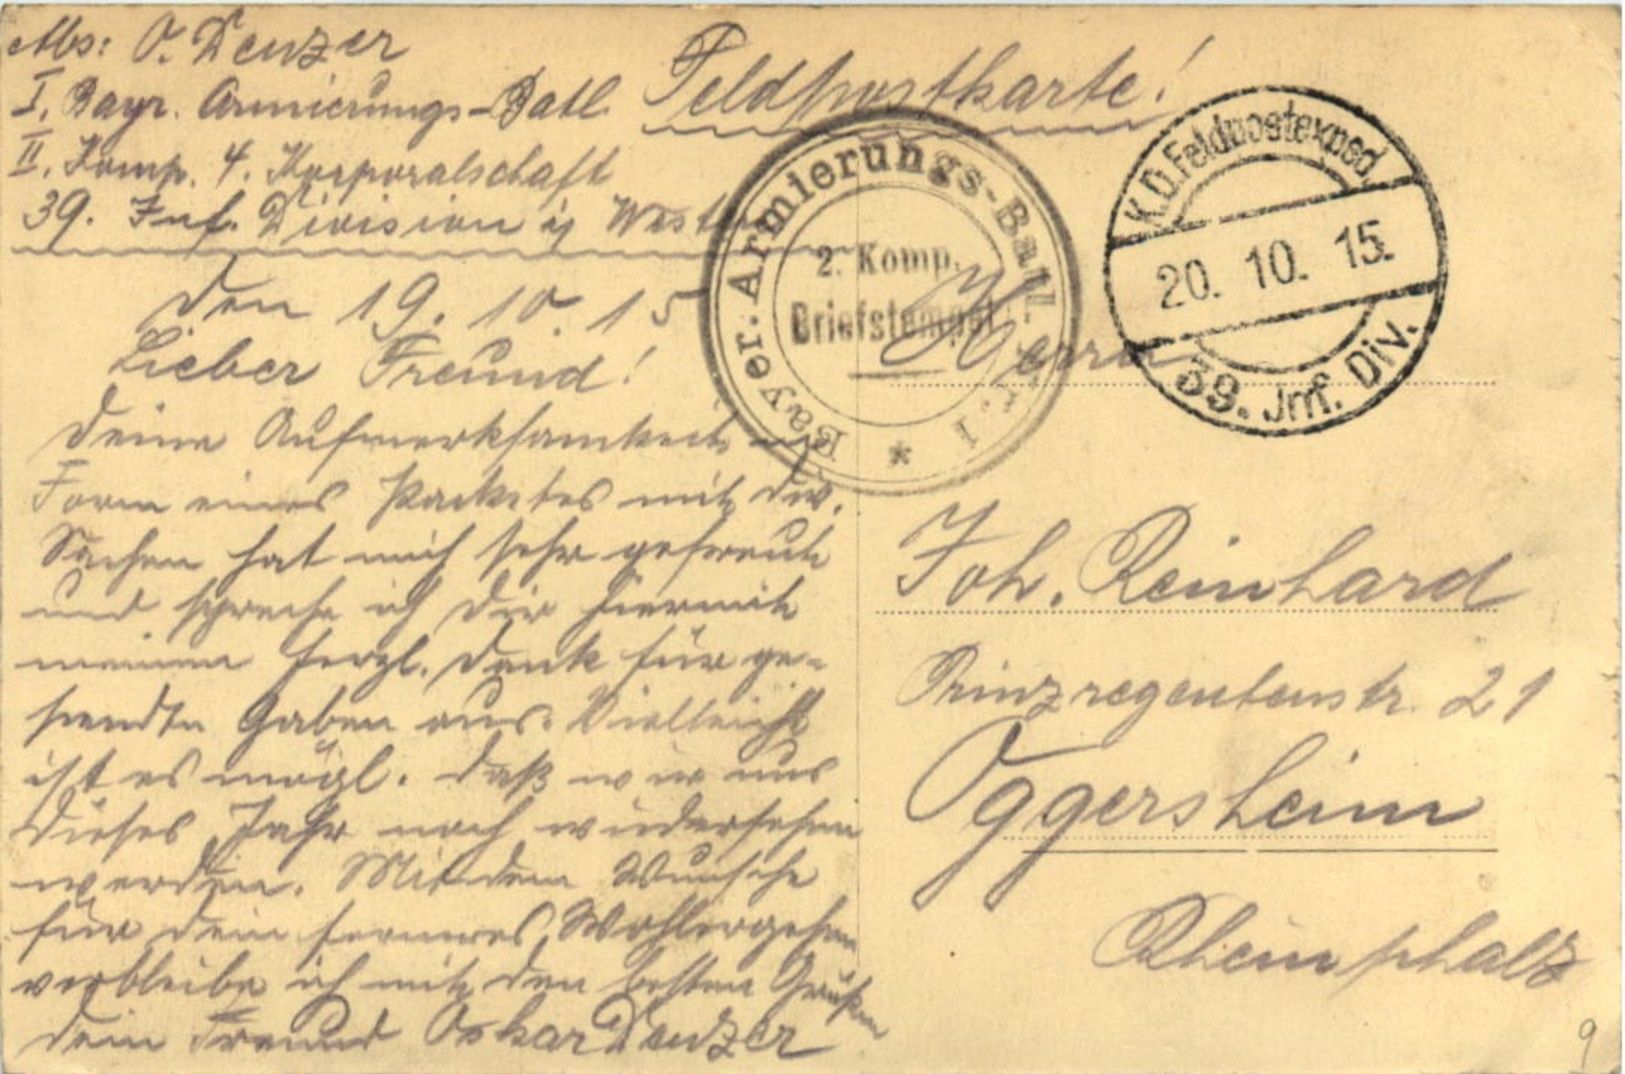 Abs: O. Denzer
I. Bayr. Armierungs-Batl.
II. Komp. 4. Korporalschaft
39. Inf. Division i/ Westen
Feldpostkarte!
Bayer. Armierungs-Batl. Nr. 1
2. Komp.
Briefstempel
K.D. Feldpostexped.
20. 10. 15.
39. Jnf. Div.
den 19. 10. 15
Lieber Freund!
Deine Aufmerksamkeit in
Form eines Packetes mit div.
Sachen hat mich sehr gefreut
und spreche ich Dir hiermit
meinen herzl. Dank für ge-
sandte Gaben aus. Vielleicht
ist es mögl. daß wir uns
dieses Jahr noch wiedersehen
werden. Mit dem Wunsche
für dein ferneres Wohlergehen
verbleibe ich mit den besten Grüßen
dein Freund Oskar Denzer
Herrn
Joh. Reinhard
Prinzregentenstr. 21
Oggersheim
Rheinphalz
9